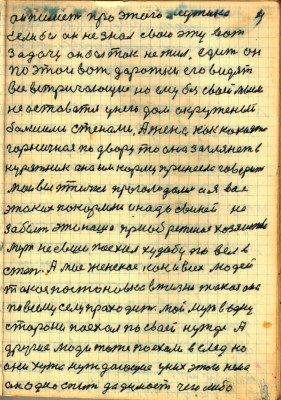 он пишет про этого мужика
семьи он не знал свою эту вот
задачу он бы так не жил. едит он
по этой вот дорожки его видят
все встречающие но ему бы свой
не оставался у него дом окруженый
большими стенами, А жена, как какаято
горничная по двору то она заглянеть в
курятник она им корму принесла говорит
мои вы птички проголодали а я вас
этаких покормлю и надо свиней не
забыть это наша приобретеная хозяйство
муж не свыше поехал худобу по вел в
степ. А мое женское как и всех людей
такое постоновка в жизни такая она
по всему селу проходит. мой муж в одну
сторону поехал по своей нужде А
другие люди тоже поехали в след но
они хужа нуждающие у них этого нема
она одно спит да думает чего либо